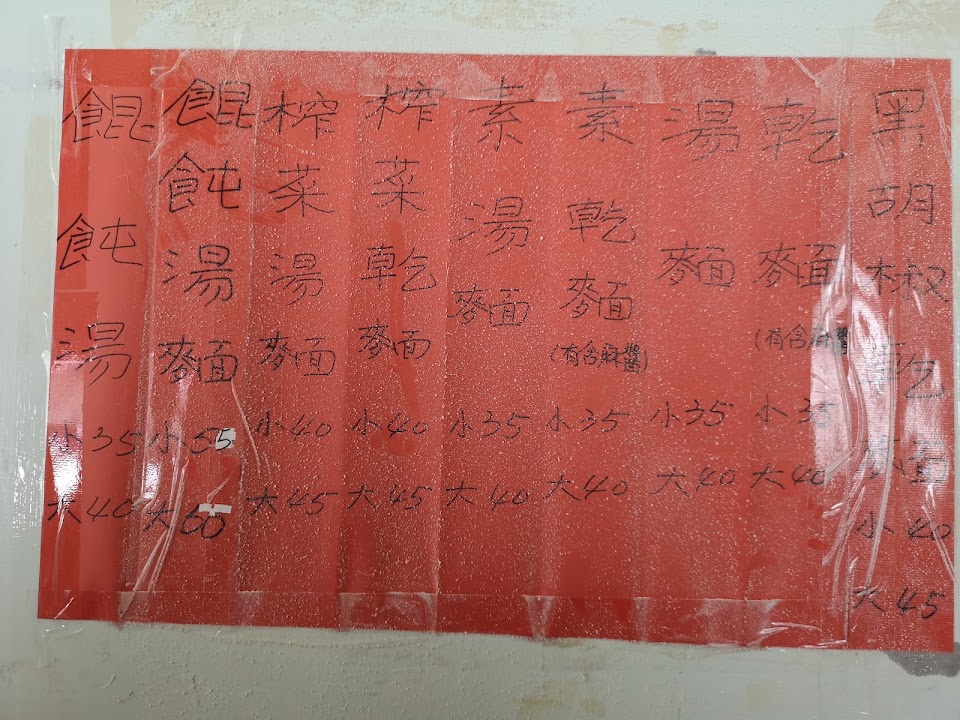 黑胡椒乾麵 小40 大45
乾麵 (有含麻醬) 小35 大40
湯麵 小35 大40
素乾麵 (有含麻醬) 小35 大40
素湯麵 小35 大40
榨菜乾麵 小40 大45
榨菜湯麵 小40 大45
餛飩湯麵 小55 大60
餛飩湯 小35 大40